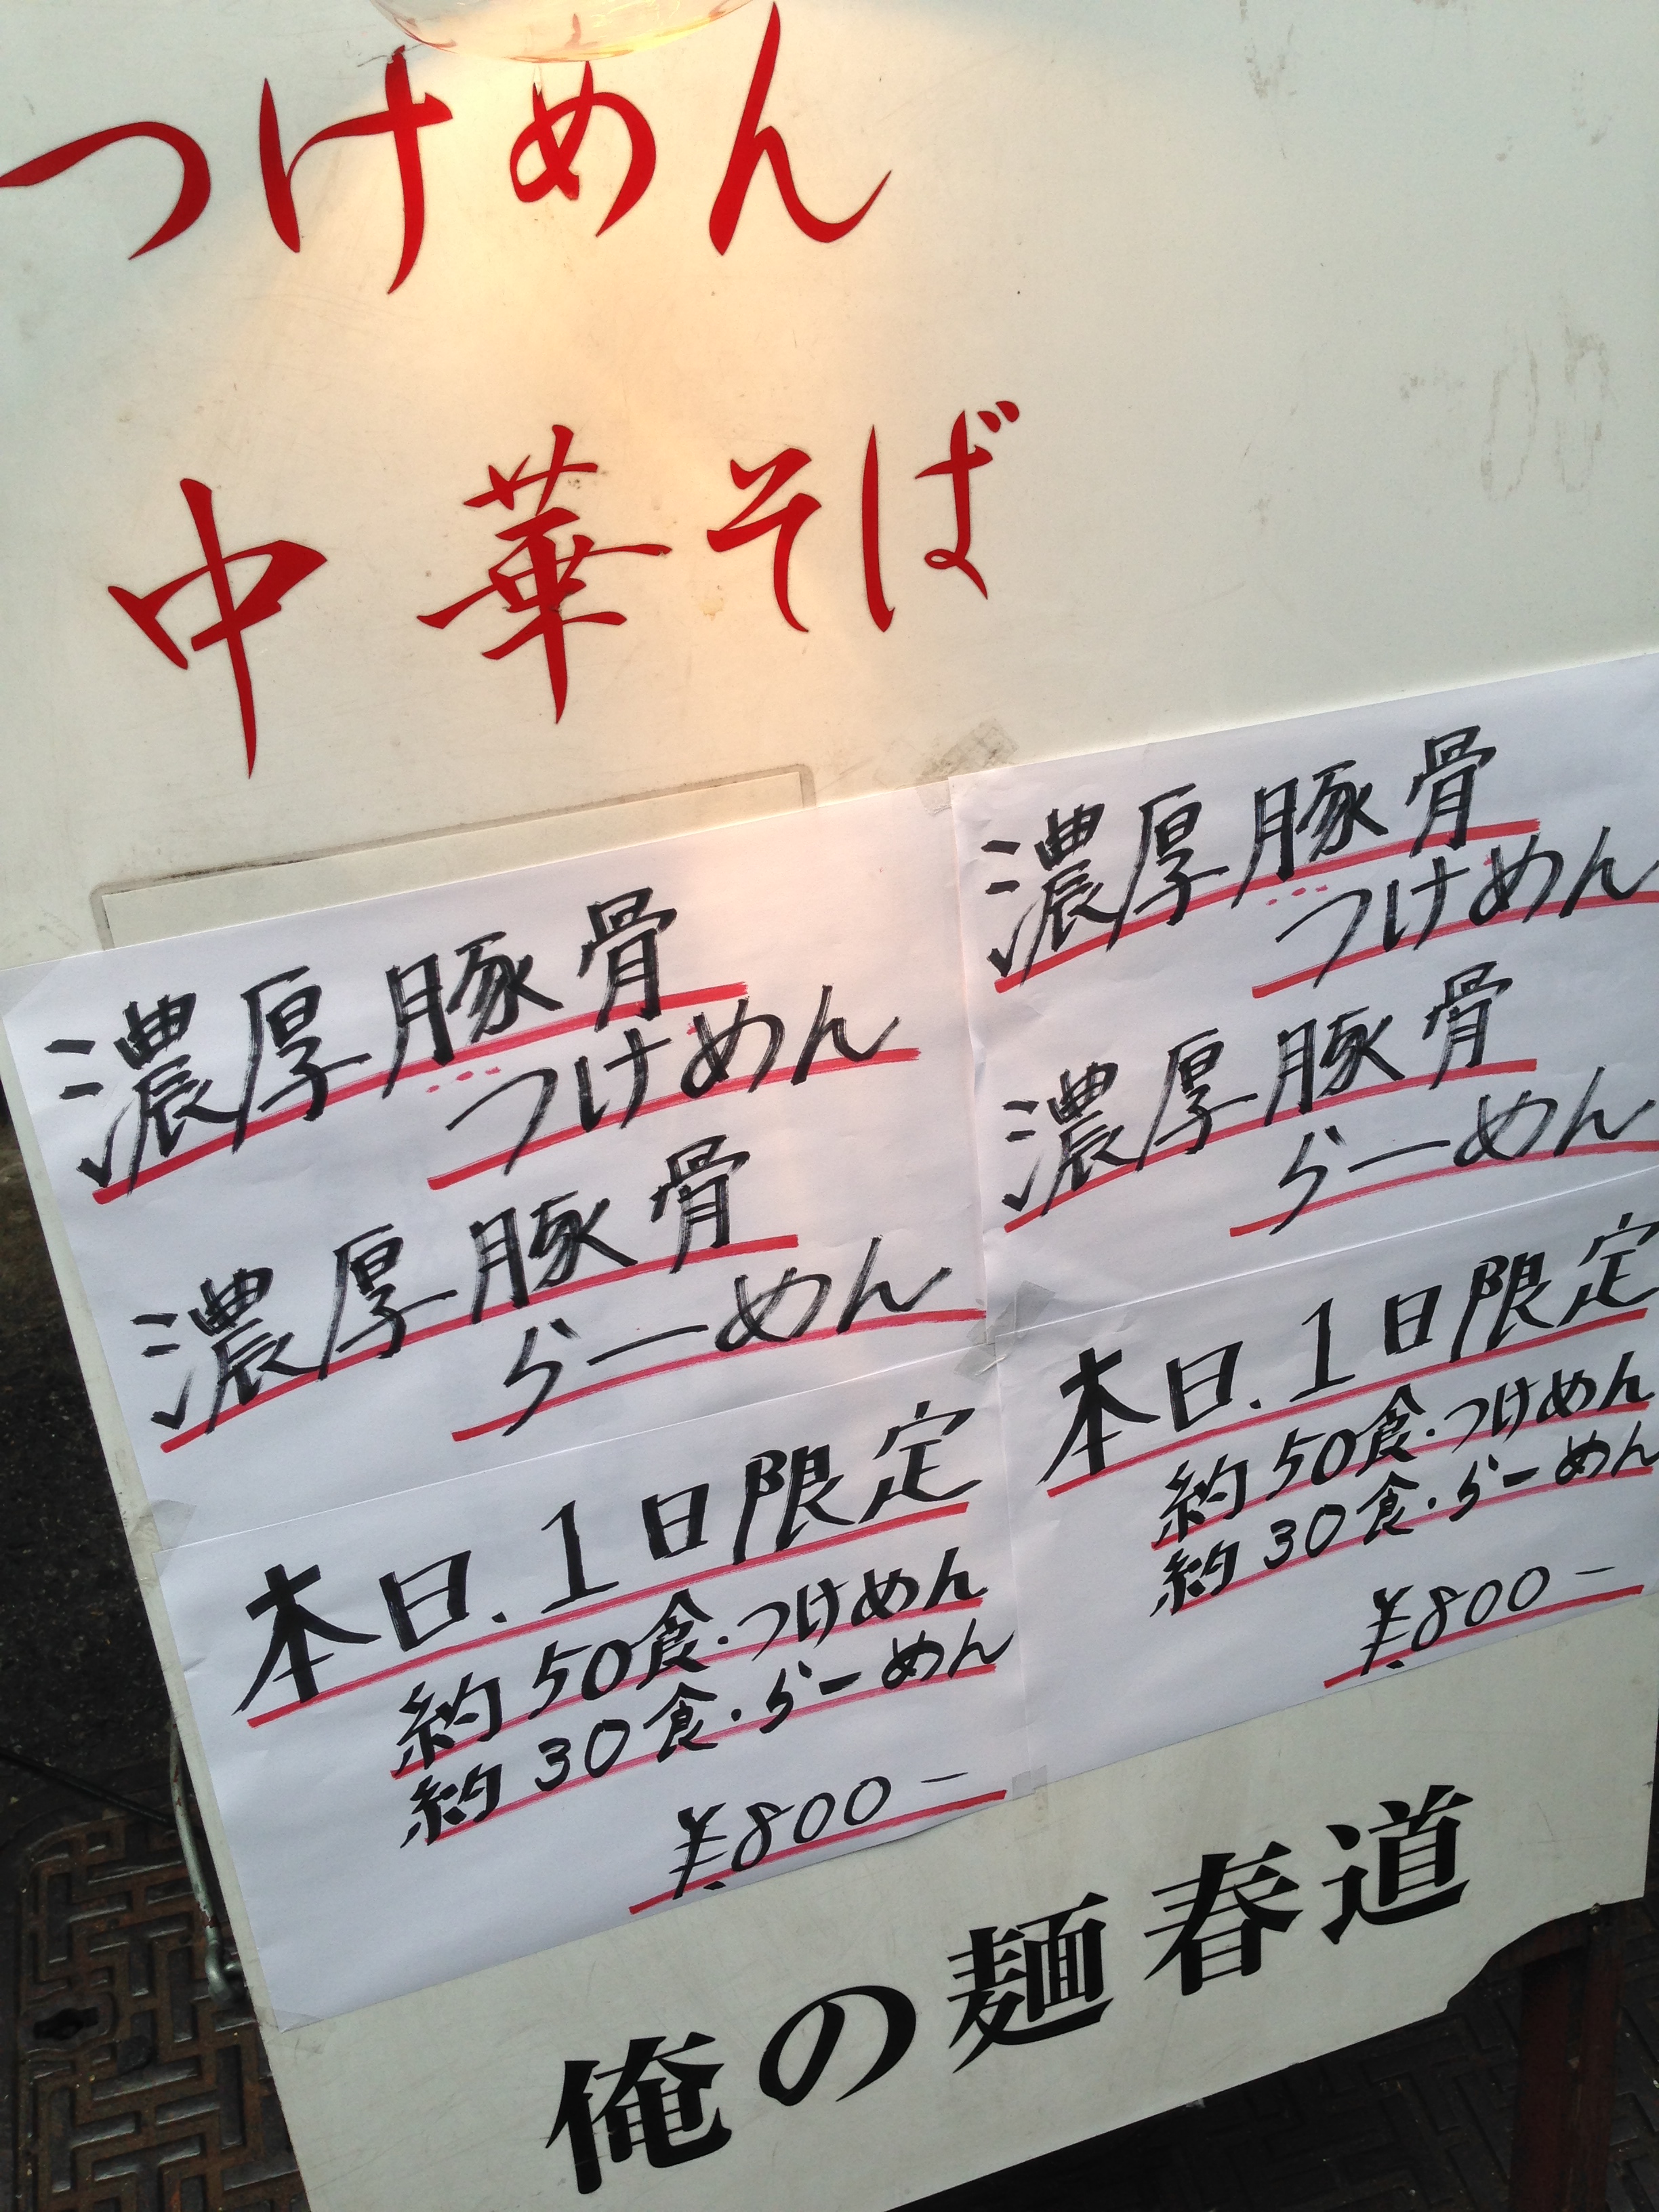 つけめん
中華そば
濃厚豚骨
つけめん
濃厚豚骨
らーめん
本日.1日限定
約50食.つけめん
約30食.らーめん
¥800-
濃厚豚骨
つけめん
濃厚豚骨
らーめん
本日.1日限定
約50食.つけめん
約30食.らーめん
¥800-
俺の麺春道